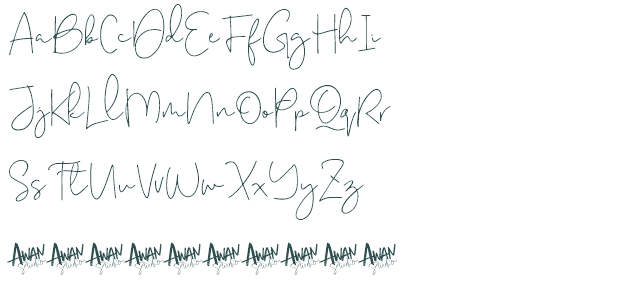 AaBbCcDdEeFfGgHhIi
JjKkLlMmNnOoPpQqRr
SsTtUuVvWwXxYyZz
AWAN Studio AWAN Studio AWAN Studio AWAN Studio AWAN Studio AWAN Studio AWAN Studio AWAN Studio AWAN Studio AWAN Studio